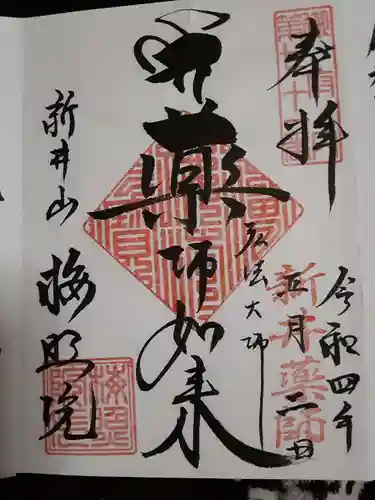 奉拝
令和四年
正月二日
新井薬師
薬師如来
弘法大師
新井山
梅照院